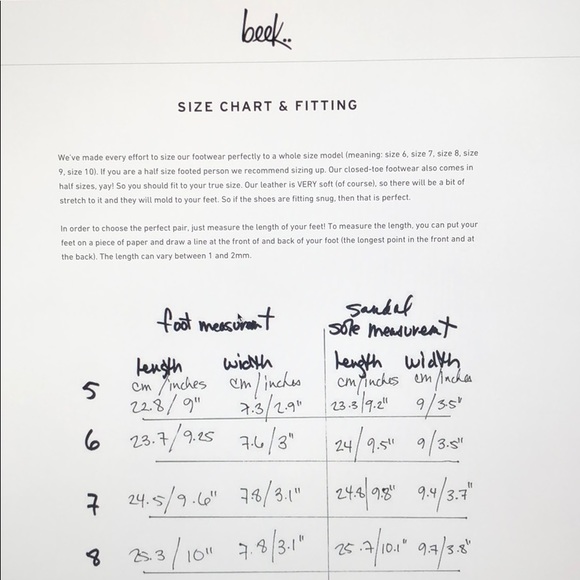 beek..
SIZE CHART & FITTING
We've made every effort to size our footwear perfectly to a whole size model (meaning: size 6, size 7, size 8, size
9, size 10). If you are a half size footed person we recommend sizing up. Our closed-toe footwear also comes in
half sizes, yay! So you should fit to your true size. Our leather is VERY soft (of course), so there will be a bit of
stretch to it and they will mold to your feet. So if the shoes are fitting snug, then that is perfect.
In order to choose the perfect pair, just measure the length of your feet! To measure the length, you can put your
feet on a piece of paper and draw a line at the front of and back of your foot (the longest point in the front and at
the back). The length can vary between 1 and 2mm.
foot measurment sandal sole measurement
length width length width
cm/inches cm/inches cm/inches cm/inches
5 22.8/9" 7.3/2.9" 23.3/9.2" 9/3.5"
6 23.7/9.25 7.6/3" 24/9.5" 9/3.5"
7 24.5/9.6" 7.8/3.1" 24.8/9.8" 9.4/3.7"
8 25.3/10" 7.8/3.1" 25.7/10.1" 9.7/3.8"